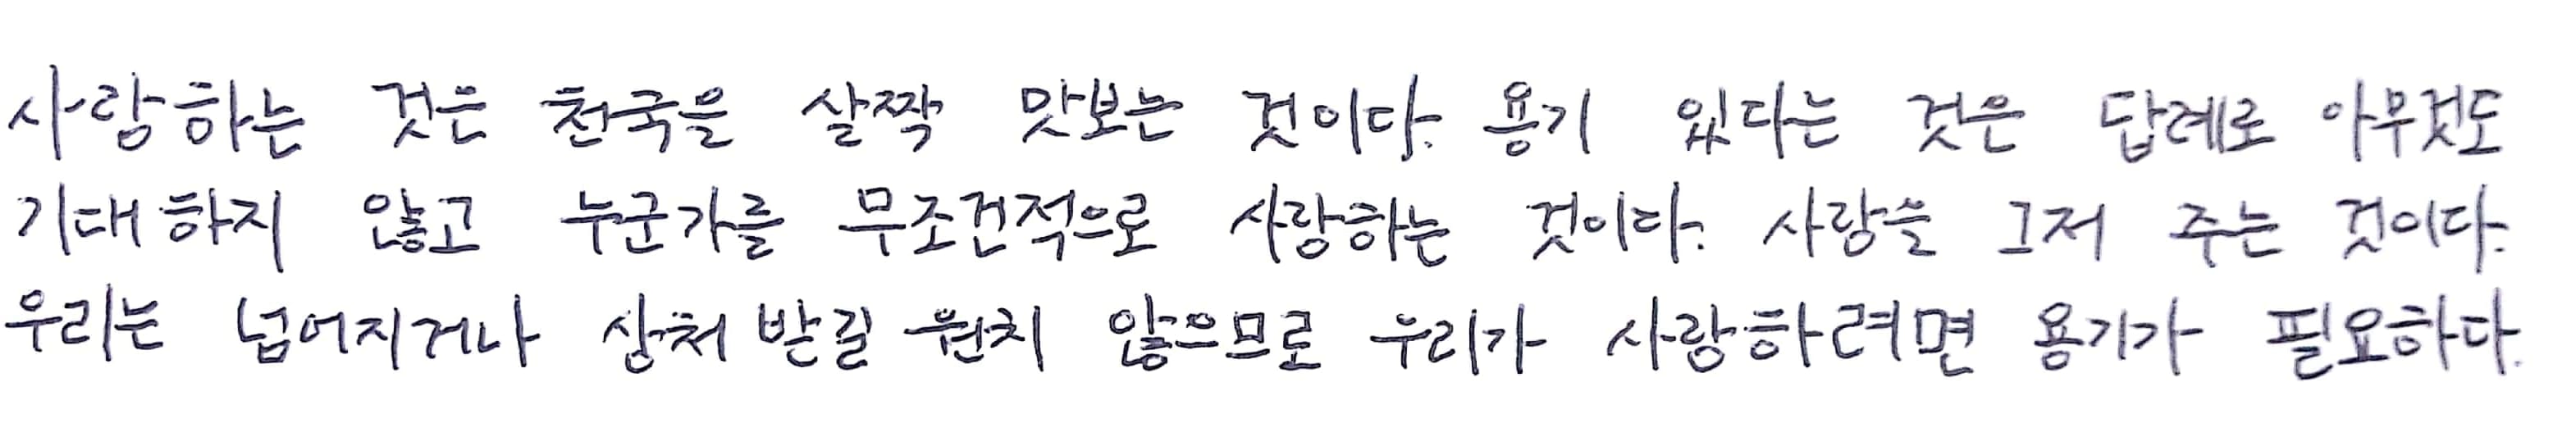 사랑하는 것은 천국을 살짝 맛보는 것이다. 용기 있다는 것은 답례로 아무것도
기대하지 않고 누군가를 무조건적으로 사랑하는 것이다. 사랑을 그저 주는 것이다.
우리는 넘어지거나 상처 받길 원치 않으므로 우리가 사랑하려면 용기가 필요하다.